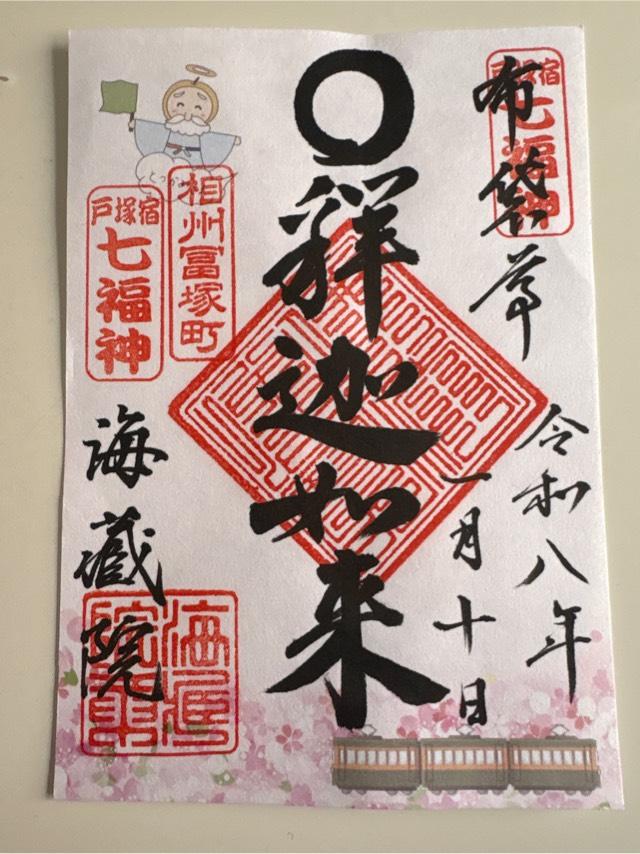 戸塚宿
七福神
布袋尊
令和八年
一月十日
釋迦如来
相州冨塚町
戸塚宿
七福神
海蔵院